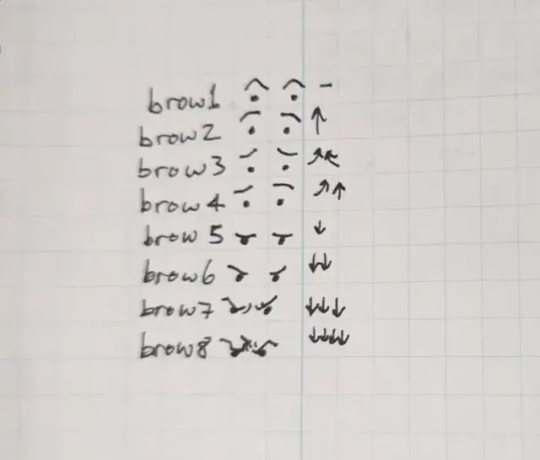 brow1 –
brow2 ↑
brow3 ↗↖
brow4 ↗↑
brow 5 ↓
brow6 ↓↓
brow7 ↓↓↓
brow8 ↓↓↓↓